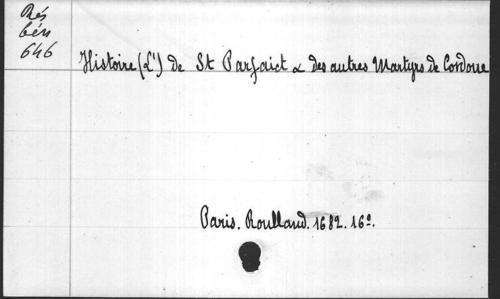 Rés
bén
646
Histoire (L') de St Parfaict & des autres Martyrs de Cordoue
Paris. Roulland. 1682. 16º.